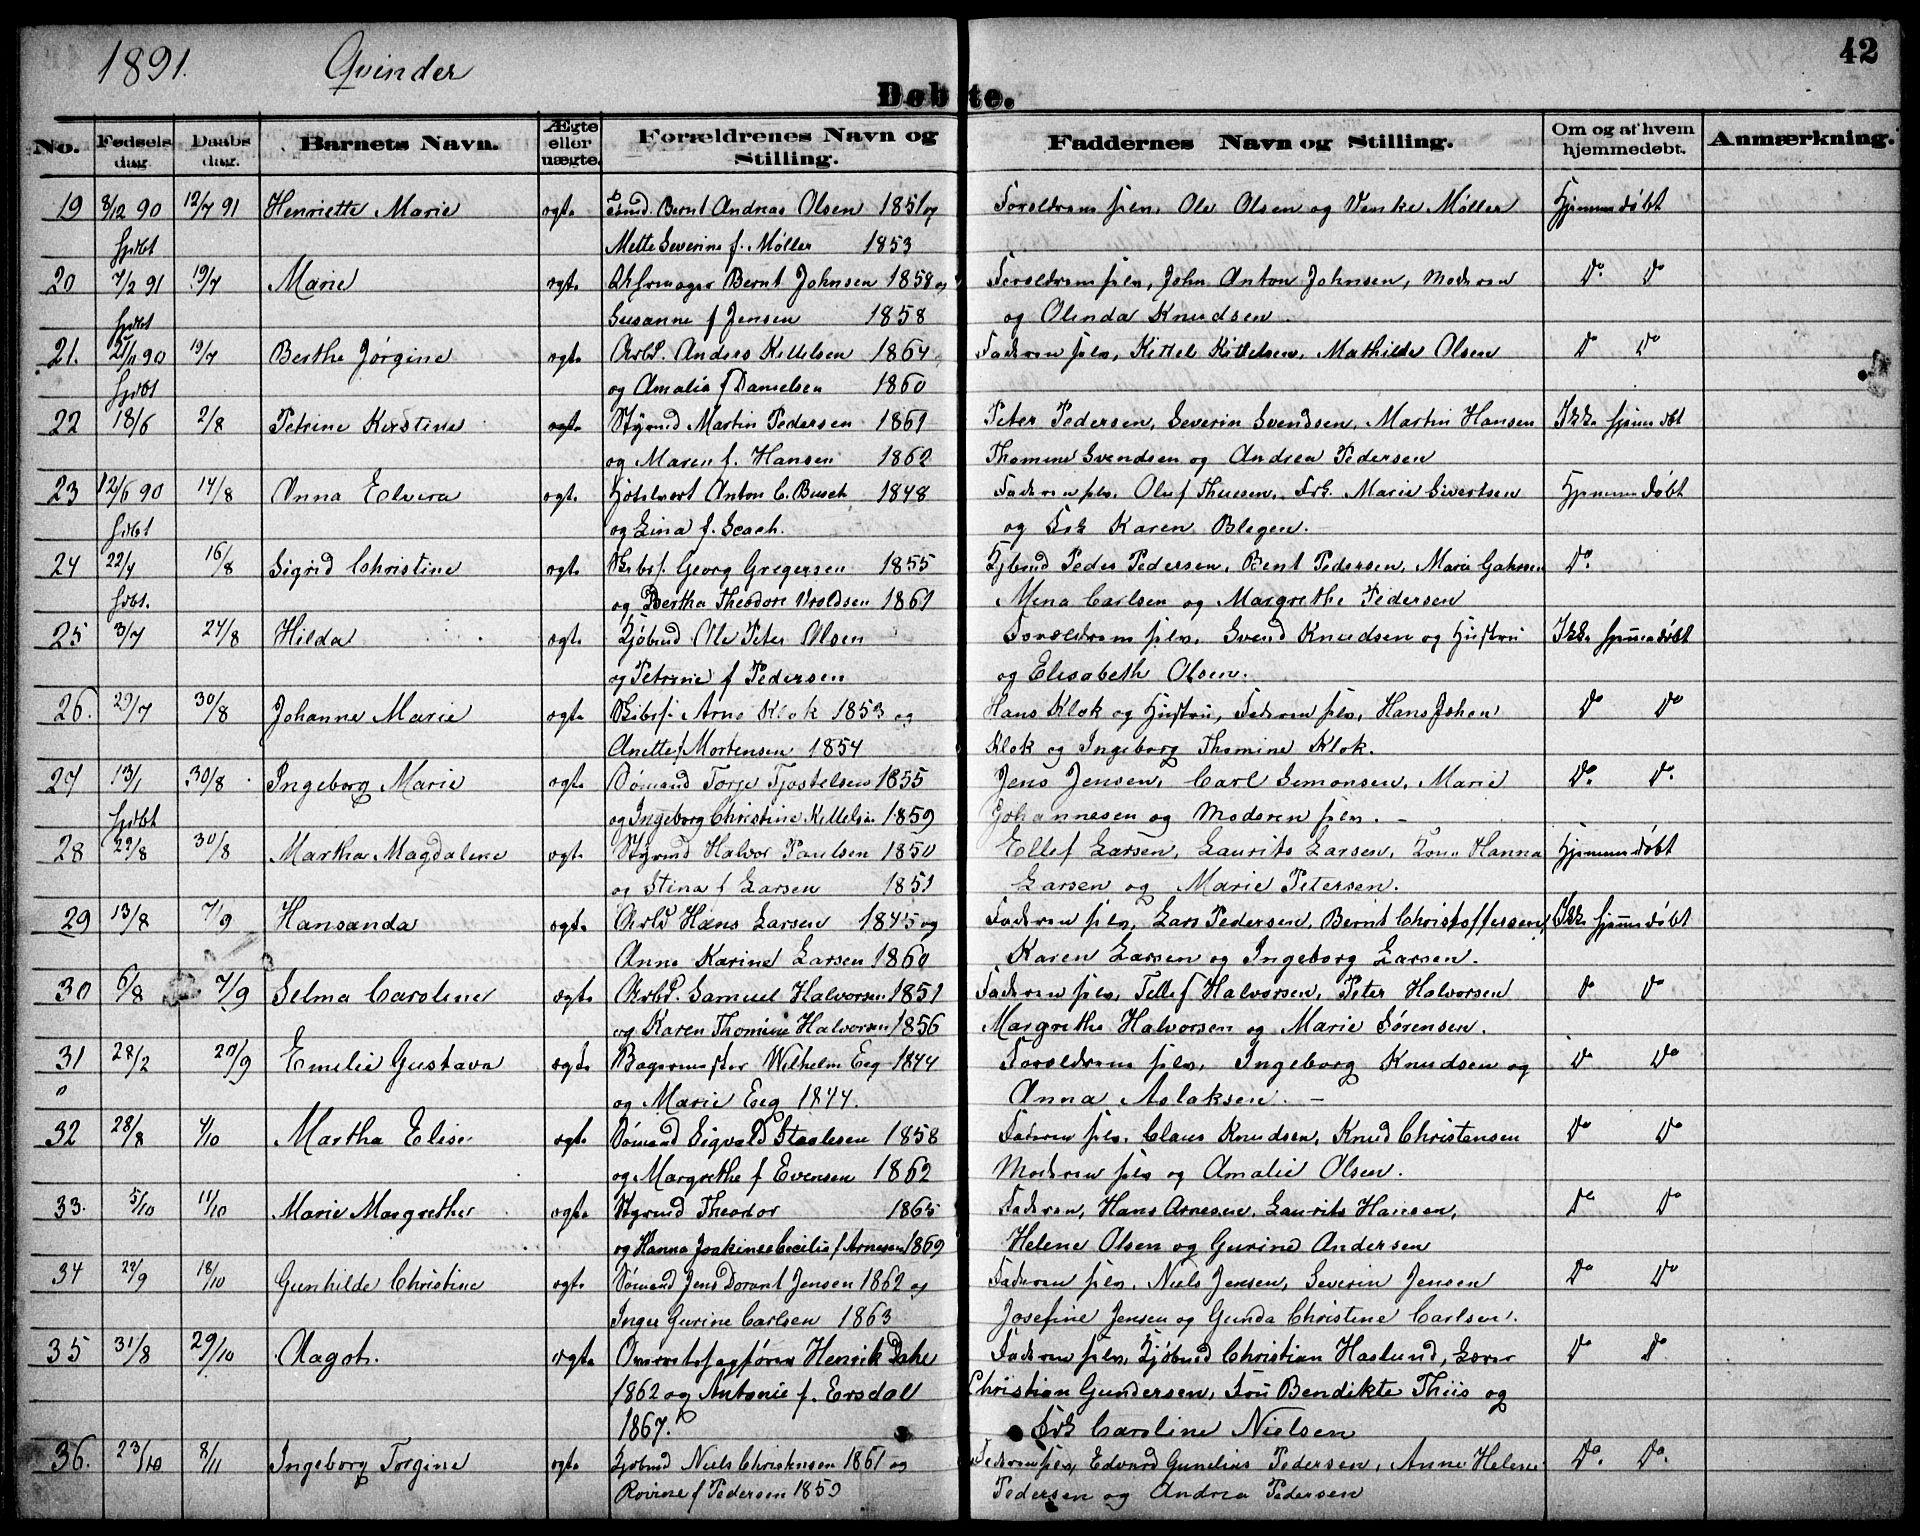 1891. Qvinder 42
Døbte.
No. Fødselsdag. Daabsdag. Barnets Navn. Ægte eller uægte. Forældrenes Navn og Stilling. Faddernes Navn og Stilling. Om og af hvem hjemmedøbt. Anmærkning.
19 8/12 90 12/7 91 Henriette Marie ægte Bernt Andreas Olsen 1851 og Forældrene selv, Ole Olsen og Venke Møller Hjemmedøbt
hjdbt Mette Severine f. Møller 1853
20 7/2 91 19/7 Marie ægte Uhrmager Bernt Johnsen 1858 og Forældrene selv, John Anton Johnsen, Moderen Do Do
hjdbt Susanne f Jensen 1858 og Olinda Knudsen.
21. 21/11 90 19/7 Berthe Jørgine ægte Arbd. Anders Kittelsen 1864 Faderen selv, Kittel Kittelsen, Mathilde Olsen Do Do
hjdbt og Amalie f Danielsen 1860
22 18/6 2/8 Petrine Kirstine ægte Styrmd Martin Pedersen 1861 Peter Pedersen, Severin Svendsen, Martin Hansen Ikke hjemmedøbt
og Maren f. Hansen 1862 Thomine Svendsen og Andrea Pedersen
23 12/6 90 14/8 Anna Elvira ægte Hotelvert Anton C. Busch 1848 Faderen selv, Oluf Thuesen, Frk. Marie Sivertsen Hjemmedøbt
hjdbt og Lina f. Seach. og Frk Karen Blegen.
24 22/4 16/8 Sigrid Christine ægte Skibsf. Georg Gregersen 1855 Kjbmd Peder Pedersen, Bent Pedersen, Marie Do
hjdbt. og Bertha Theodore Vroldsen 1861 Mina Carlsen og Margrethe Pedersen
25 3/7 24/8 Hilda ægte Kjøbmd Ole Peter Olsen Forældrene selv, Svend Knudsen og Hustru Ikke hjemmedøbt
og Petrine f Pedersen og Elisabeth Olsen.
26. 29/7 30/8 Johanne Marie ægte Skibsf. Arne Klok 1853 og Hans Klok og Hustru, Faderen selv, Hans Johan Do Do
Anette f Mortensen 1854 Klok og Ingeborg Thomine Klok.
27 13/1 30/8 Ingeborg Marie ægte Sømand Torje Tjostelsen 1855 Jens Jensen, Carl Simonsen, Marie Do Do
hjdbt og Ingeborg Christine Kittelsen 1859 Johannesen og Moderen selv. –
28 29/8 30/8 Martha Magdalene ægte Styrmd Halvor Paulsen 1850 Ellef Larsen, Laurits Larsen, Hanna Hjemmedøbt
og Stina f Larsen 1851 Larsen og Marie Petersen.
29 13/8 7/9 Hansanda ægte Arbd Hans Larsen 1845 og Faderen selv, Lars Pedersen, Bernt Christoffersen, Ikke hjemmedøbt
Anne Karine Larsen 1860 Karen Larsen og Ingeborg Larsen.
30 6/8 7/9 Selma Caroline ægte Arbd. Samuel Halvorsen 1851 Faderen selv, Tellef Halvorsen, Peter Halvorsen Do Do
og Karen Thomine Halvorsen 1856 Margrethe Halvorsen og Marie Sørensen.
31 28/2 20/9 Emilie Gustava ægte Bagermester Wilhelm Eeg 1844 Forældrene selv, Ingeborg Knudsen og Do Do
og Marie Eeg 1844. Anna Aslaksen. –
32 28/8 4/10 Martha Elise ægte Sømand Sigvald Staalesen 1858 Faderen selv, Claus Knudsen, Knud Christensen Do Do
og Margrethe f Evensen 1862 Moderen selv og Amalie Olsen.
33. 5/10 11/10 Marie Margrethe ægte Styrmd Theodor 1865 Faderen, Hans Arnesen, Laurits Hansen, Do Do
og Hanna Joakine Cecilie f Arnesen 1869 Helene Olsen og Gurine Andersen
34 22/9 18/10 Gunhilde Christine ægte Sømand Jens Dorant Jensen 1862 og Faderen selv, Niels Jensen, Severin Jensen Do Do
Inger Gurine Carlsen 1863 Josefine Jensen og Gunda Christine Carlsen.
35 31/8 29/10 Aagot. ægte Overretssagfører Henrik Dahl Faderen selv, Kjøbmd Christian Haslund, Lærer Do Do
1862 og Antonie f. Ersdal Christian Gundersen, Fru Bendikte Thiis og
1867. Frk Caroline Nielsen
36. 23/10 8/11 Ingeborg Torgine ægte Kjøbmd Niels Christensen 1861 og Faderen selv, Edvard Gunelius Pedersen, Anne Helene Do Do
Rovine f Pedersen 1859 Pedersen og Andrea Pedersen